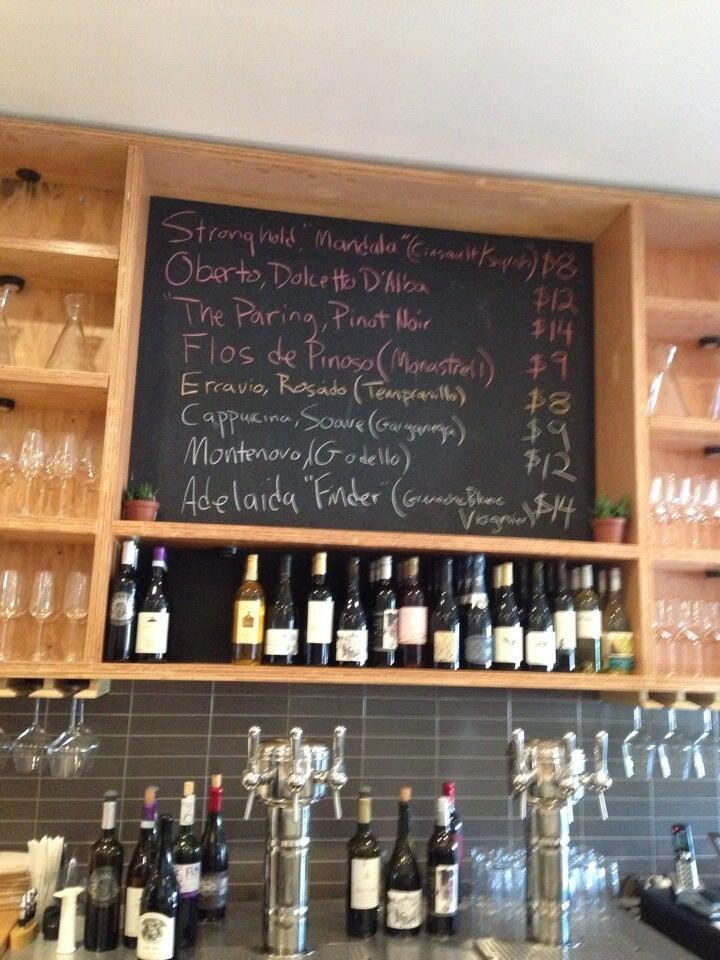 Stronghold, "Mandala" (Cinsault/Syrah) $8
Oberto, Dolcetto D'Alba $12
"The Paring, Pinot Noir $14
Flos de Pinoso (Monastrell) $9
Ercavio, Rosado (Tempranillo) $8
Cappuccina, Soave (Garganega) $9
Montenovo, (Godello) $12
Adelaida "Finder" (Grenache Blanc
Viognier) $14